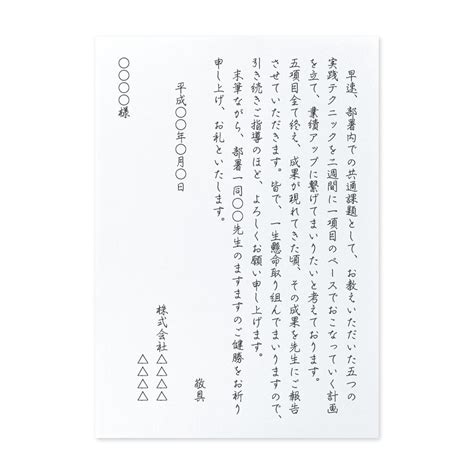 早速、部署内での共通課題として、お教えいただいた五つの
実践テクニックを二週間に一項目のペースでおこなっていく計画
を立て、業績アップに繋げてまいりたいと考えております。
五項目全て終え、成果が現れてきた頃、その成果を先生にご報告
させていただきます。皆で、一生懸命取り組んでまいりますので、
引き続きご指導のほど、よろしくお願い申し上げます。
末筆ながら、部署一同〇〇先生のますますのご健勝をお祈り
申し上げ、お礼といたします。
敬具
平成〇〇年〇月〇日
株式会社△△△△
△△△△
〇〇〇〇様